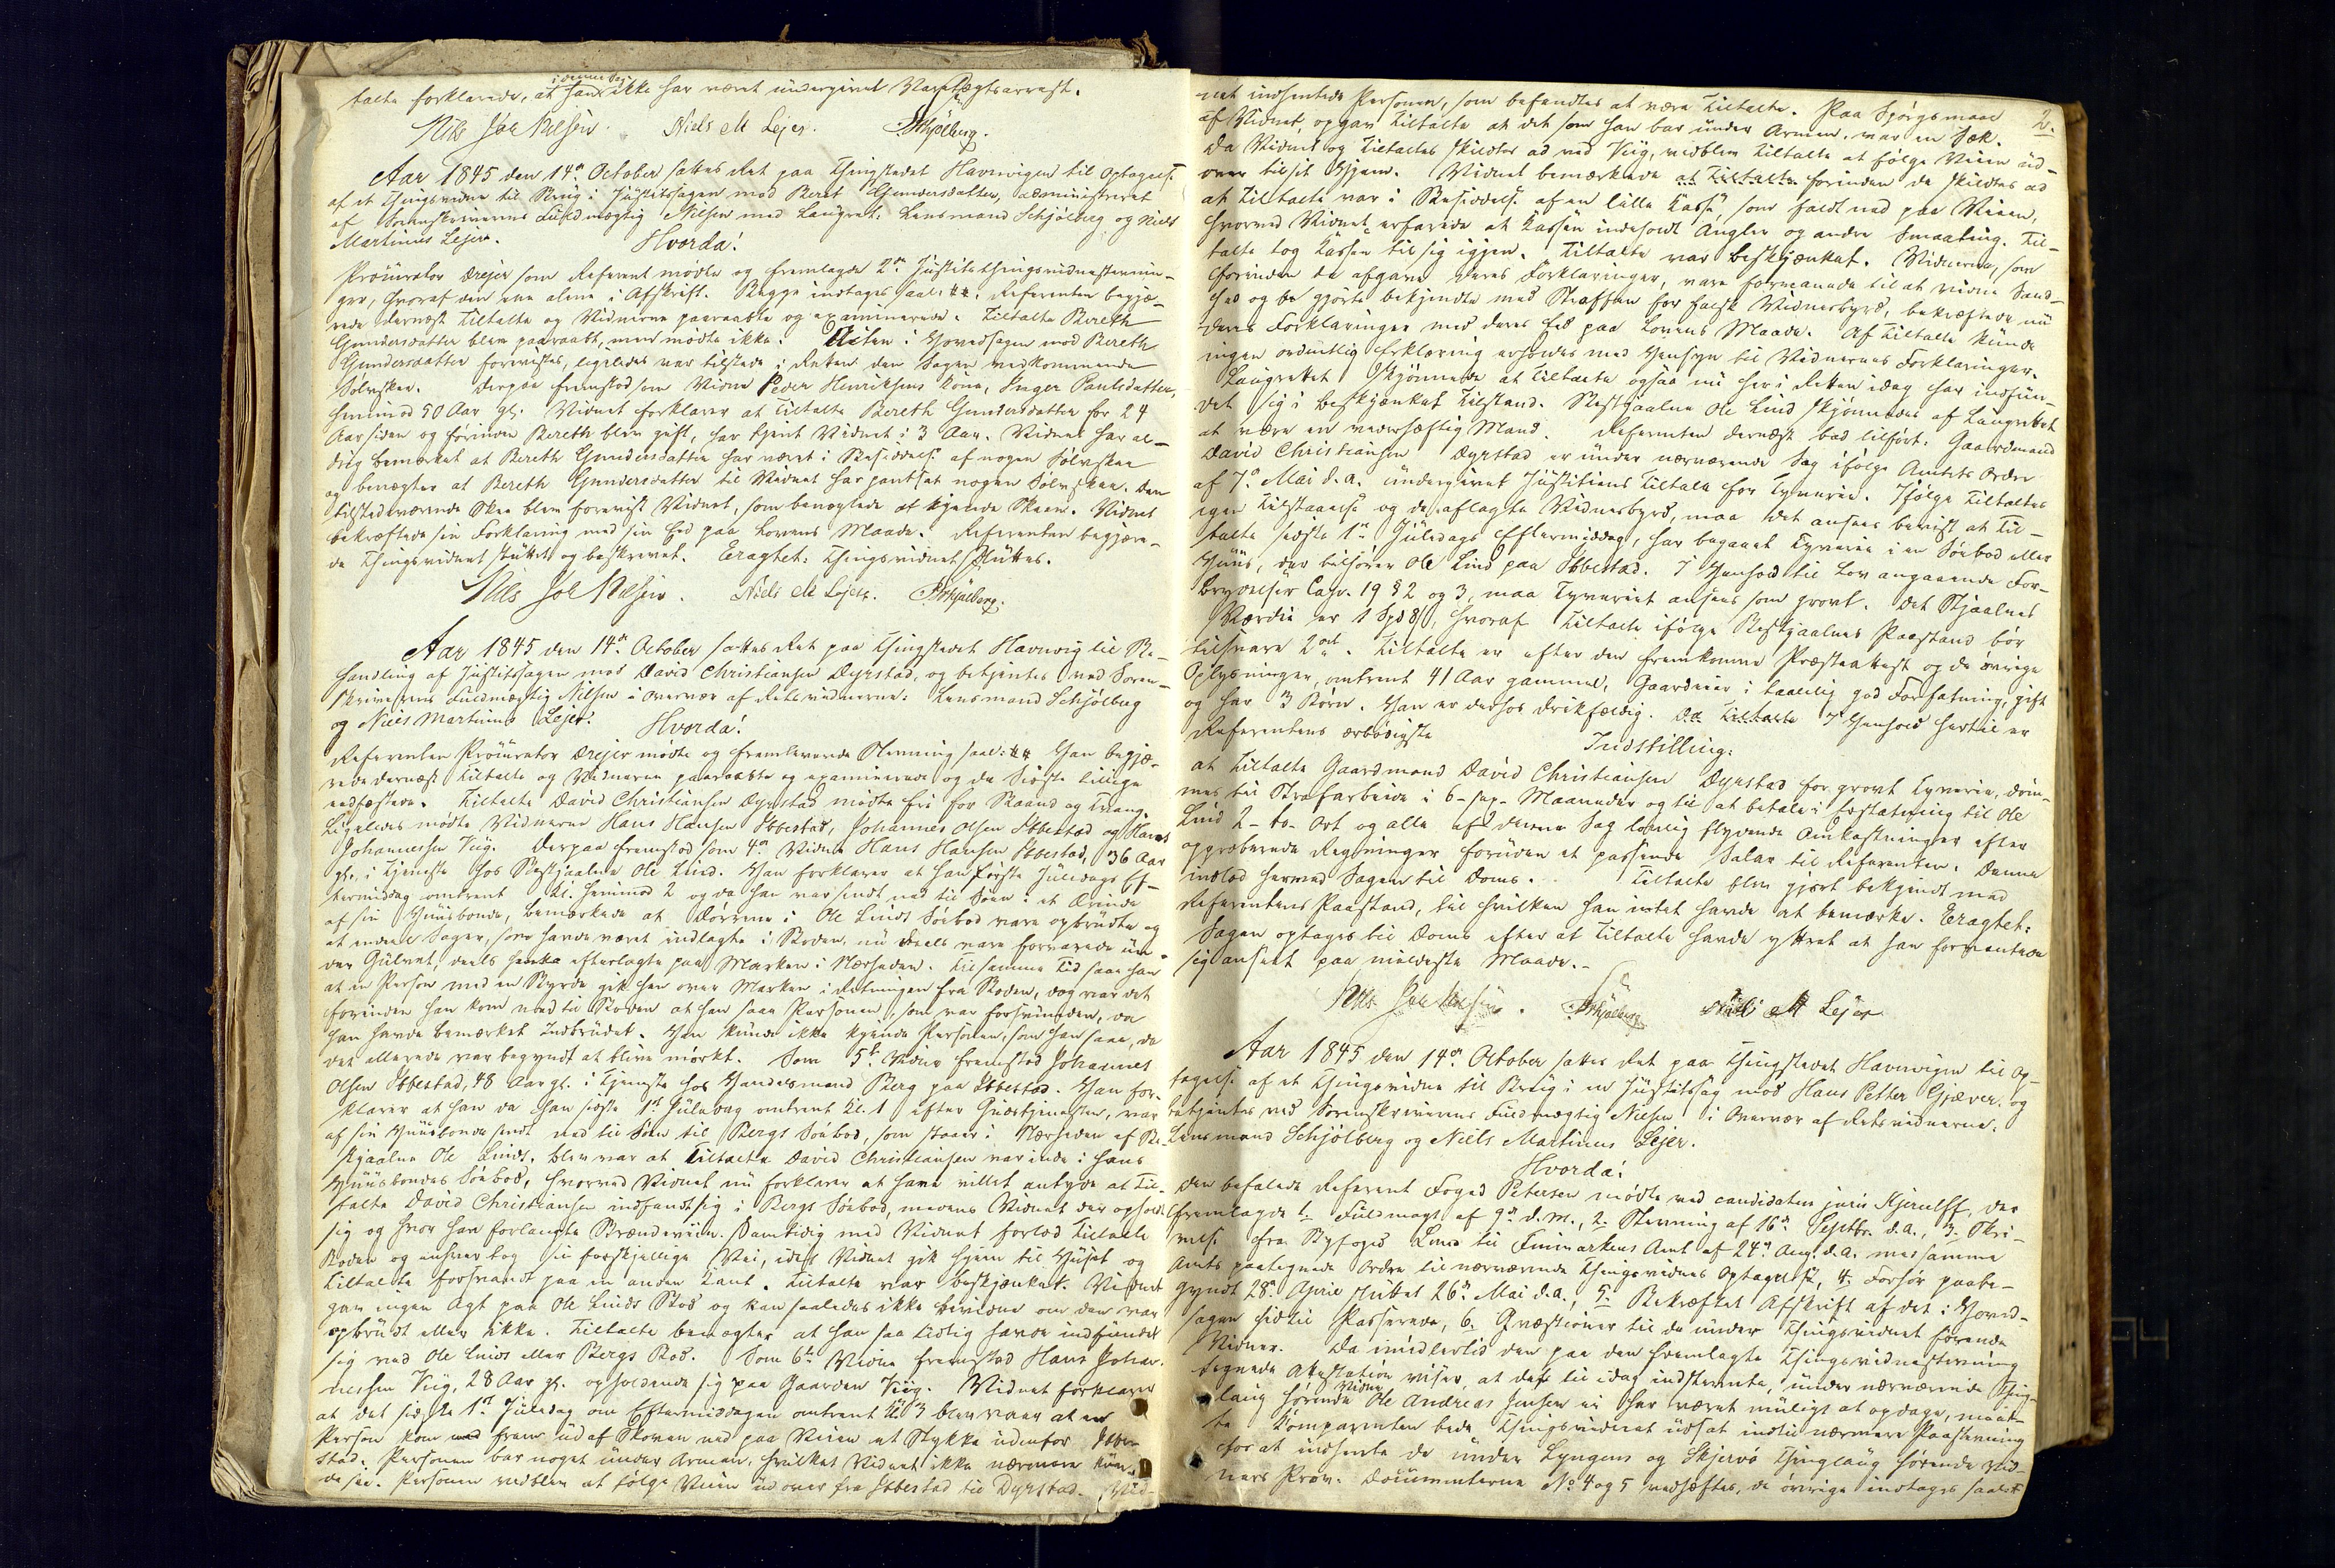 i denne Sag
talte forklarede, at han ikke har været undergivet Varetægtsarrest.
Nils Joh Nilsen. Niels M Lejer. Schjølberg.
Aar 1845 den 14de October sattes Ret paa Thingstedet Havnvigen til Optagelse
af et Thingsvidne til Brug i Justitssagen mod Bereth Gundersdatter, administreret
af Sorenskriverens Fuldmægtig Nilsen med Laugret: Lensmand Schjølberg og Niels
Martinus Lejer. Hvorda!
Procurator Drejer som Referent mødte og fremlagde 2de Justitsthingsvidnestevnin-
ger, hvoraf den ene alene i Afskrift. Begge indtages saal: Referenten begjæ-
rede dernæst Tiltalte og Vidnerne paaraabte og examinerede. Tiltalte Bereth
Gundersdatter blev paaraabt, men mødte ikke. Acten i Hovedsagen mod Bereth
Gundersdatter forevistes, ligeledes var tilstede i Retten den Sagen vedkommende
Sølvskee. Derpaa fremstod som Vidne Peder Henriksens Kone, Inger Paulsdatter,
henimod 50 Aar gl. Vidnet forklarer at Tiltalte Bereth Gundersdatter for 24
Aar siden og førinden Bereth blev gift, har tjent Vidnet i 3 Aar. Vidnet har al-
drig bemærket at Bereth Gundersdatter har været i Besiddelse af nogen Sølvskee
og benægter at Bereth Gundersdatter til Vidnet har pantsat nogen Sølvskee. Den
tilstedeværende Skee blev forevist Vidnet, som benægtede at kjende Skeen. Vidnet
bekræftede sin Forklaring med sin Eed paa Lovens Maade. Referenten begjære-
de Thingsvidnet sluttet og beskrevet. Eragtet: Thingsvidnet sluttes.
Nils Joh Nilsen. Niels M Lejer. Schjølberg.
Aar 1845 den 14de October sattes Ret paa Thingstedet Havnvig til Be-
handling af Justitssagen mod David Christiansen Dyrstad, og betjentes ved Soren-
skriverens Fuldmægtig Nilsen i Overvær af Retsvidnerne: Lensmand Schjølberg
og Niels Martinus Lejer. Hvorda!
Referenten Procurator Drejer mødte og fremleverede Stevning saal: Han begjæ-
rede dernæst Tiltalte og Vidnerne paaraabte og examinerede og de Sidste tillige
eedfæstede. Tiltalte David Christiansen Dyrstad mødte fri for Baand og Tvang.
Ligeledes mødte Vidnerne Hans Hansen Ibbestad, Johannes Olsen Ibbestad og Hans
Johannessen Viig. Derpaa fremstod som 4de Vidne Hans Hansen Ibbestad, 36 Aar
gl. i Tjeneste hos Bestjaalne Ole Lind. Han forklarer at han første Juledags Ef-
termiddag omtrent Kl. henimod 2 og da han var sendt ned til Søen i et Ærinde
af sin Huusbonde, bemærkede at Dørrene i Ole Linds Søebod vare opbrudte og
at endeel Sager, som havde været indlagte i Boden, nu deels vare forvarede un-
der Gulvet, deels henka efterlagte paa Marken i Nærheden. Til samme Tid saae han
at en Person med en Byrde gik hen over Marken i Retningen fra Boden, dog var det
forinden han kom ned til Boden at han saae Personen, som var forsvunden, da
han havde bemærket Indbrudet. Han kunde ikke kjende Personen, som han saae, da
det allerede var begyndt at blive mørkt. Som 5te Vidne fremstod Johannes
Olsen Ibbestad, 48 Aar gl. i Tjeneste hos Handelsmand Berg paa Ibbestad. Han for-
klarer at han da han sidste 1ste Juledag omtrent Kl. 1 efter Gudstjenesten, var
af sin Huusbonde sendt ned til Søen til Bergs Søebod, som staaer i Nærheden af Be-
stjaalne Ole Linds, blev var at Tiltalte David Christiansen var inde i hans
Huusbondes Søebod, hvorved Vidnet nu forklarer at have villet antyde at Til-
talte David Christiansen indfandt sig i Bergs Søebod, medens Vidnet der opholdt
sig og hvor han forlangte Brændeviin. Samtidig med Vidnet forlod Tiltalte
Boden og enhver tog sin forskjellige Vei, idet Vidnet gik hjem til Huset og
Tiltalte forsvandt paa en anden Kant. Tiltalte var beskjænket. Vidnet
gav ingen Agt paa Ole Linds Bod og kan saaledes ikke bevidne om den var
opbrudt eller ikke. Tiltalte benægter at han saa tidlig havde indfundet
sig ved Ole Linds eller Bergs Bod. Som 6te Vidne fremstod Hans Johan-
nessen Viig, 28 Aar gl. opholdende sig paa Gaarden Viig. Vidnet forklarer
at det sidste 1ste Juledag om Eftermiddagen omtrent Kl 3 blev vaer at en
Person kom med frem ud af Skoven ned paa Veien et Stykke udenfor Ibbe-
stad. Personen bar noget under Armen, hvilket Vidnet ikke nærmere kun-
de see. Personen vedblev at følge Veien udover fra Ibbestad til Dyrstad. Vid-
2.
net indhentede Personen, som befandtes at være Tiltalte. Paa Spørgsmaal
af Vidnet, opgav Tiltalte at det som han bar under Armen, var en Sæk.
Da Vidnet og Tiltalte skildtes ad ved Viig, vedblev Tiltalte at følge Veien ud-
over til sit Hjem. Vidnet bemærkede at Tiltalte forinden de skildtes ad
at Tiltalte var i Besiddelse af en lille Kasse, som faldt ned paa Veien,
hvorved Vidnet erfarede at Kassen indeholdt Angler og andre Smaating. Til-
talte tog Kassen til sig igjen. Tiltalte var beskjænket. Vidnerne, som
forinden de afgave deres Forklaringer, vare formanede til at vidne Sand-
hed og be gjorte bekjendte med Straffen for falsk Vidnesbyrd, bekræftede nu
deres Forklaringer med deres Eed paa Lovens Maade. Af Tiltalte kunde
ingen ordentlig Erklæring erholdes med Hensyn til Vidnernes Forklaringer.
Laugretet skjønnede at Tiltalte ogsaa nu her i Retten idag har indfun-
det sig i beskjænket Tilstand. Bestjaalne Ole Lind skjønnedes af Laugretet
at være en vederhæftig Mand. Referenten dernæst bad tilført: Gaardmand
David Christiansen Dyrstad er under nærværende Sag ifølge Amtets Ordre
af 7de Mai d.a. undergivet Justitiens Tiltale for Tyverie. Ifølge Tiltaltes
egen Tilstaaelse og de aflagte Vidnesbyrd, maa det ansees beviist at Til-
talte sidste 1ste Juledags Eftermiddag, har begaaet Tyverie i en Søebod eller
Huus, der tilhører Ole Lind paa Ibbestad. I Henhold til Lov angaaende For-
brydelser Cap. 19 § 2 og 3, maa Tyveriet ansees som grovt. Det Stjaalnes
Værdie er 1 Spd 8 s, hvoraf Tiltalte ifølge Bestjaalnes Paastand bør
tilsvare 2 ort. Tiltalte er efter den fremkomne Præsteattest og de øvrige
Oplysninger, omtrent 41 Aar gammel, Gaardeier i taalelig god Forfatning, gift
og har 3 Børn. Han er derhos drikfældig. Da Tiltalte I Henhold hertil er
Referentens ærbødigste
Indstilling:
at Tiltalte Gaardmand David Christiansen Dyrstad for grovt Tyverie, døm-
mes til Strafarbeide i 6 -sex- Maaneder og til at betale i Erstatning til Ole
Lind 2 -to- Ort og alle af denne Sag lovlig flydende Omkostninger efter
approberede Regninger foruden et passende Salær til Referenten. Denne
indlod hermed Sagen til Doms. Tiltalte blev gjort bekjendt med
Referentens Paastand, til hvilken han intet havde at bemærke. Eragtet:
Sagen optages til Doms efter at Tiltalte havde yttret at han formentede
sig anseet paa mildeste Maade.
Nils Joh Nilsen. Schjølberg Niels M Lejer
Aar 1845 den 14de October sattes Ret paa Thingstedet Havnvigen til Op-
tagelse af et Thingsvidne til Brug i en Justitssag mod Hans Petter Gjæver. og
betjentes ved Sorenskriverens Fuldmægtig Nilsen i Overvær af Retsvidnerne.
Lensmand Schjølberg og Niels Martinus Lejer.
Hvorda!
Den befalede Referent Foged Petersen mødte ved candidaten juris Kjerulff, der
fremlagde 1. Fuldmagt af 9de d.M., 2. Stevning af 16de Septbr. d.a., 3. Skri-
velse fra Byfoged Lund til Finmarkens Amt af 24de Aug. d.a. med samme
Amts paategnede Ordre til nærværende Thingsvidnes Optagelse, 4. Forhør paabe-
gyndt 28de April sluttet 26de Mai d.a., 5. Bekræftet Afskrift af det i Hoved-
sagen hidtil Passerede, 6. Qvæstioner til de under Thingsvidnet førende
Vidner. Da imidlertid den paa den fremlagte Thingsvidnestevning
tegnede Attestation viser, at det til idag indstevnte, under nærværende Thing-
laug hørende Vidne Ole Andreas Jensen ei har været muligt at opdage, maat-
te Comparenten bede Thingsvidnet udsat indtil nærmere Paastevning
for at indhente de under Lyngens og Skjervø Thinglaug hørende Vid-
ners Prov. Documenterne No 4 og 5 vedhæftes, de øvrige indtages saal: